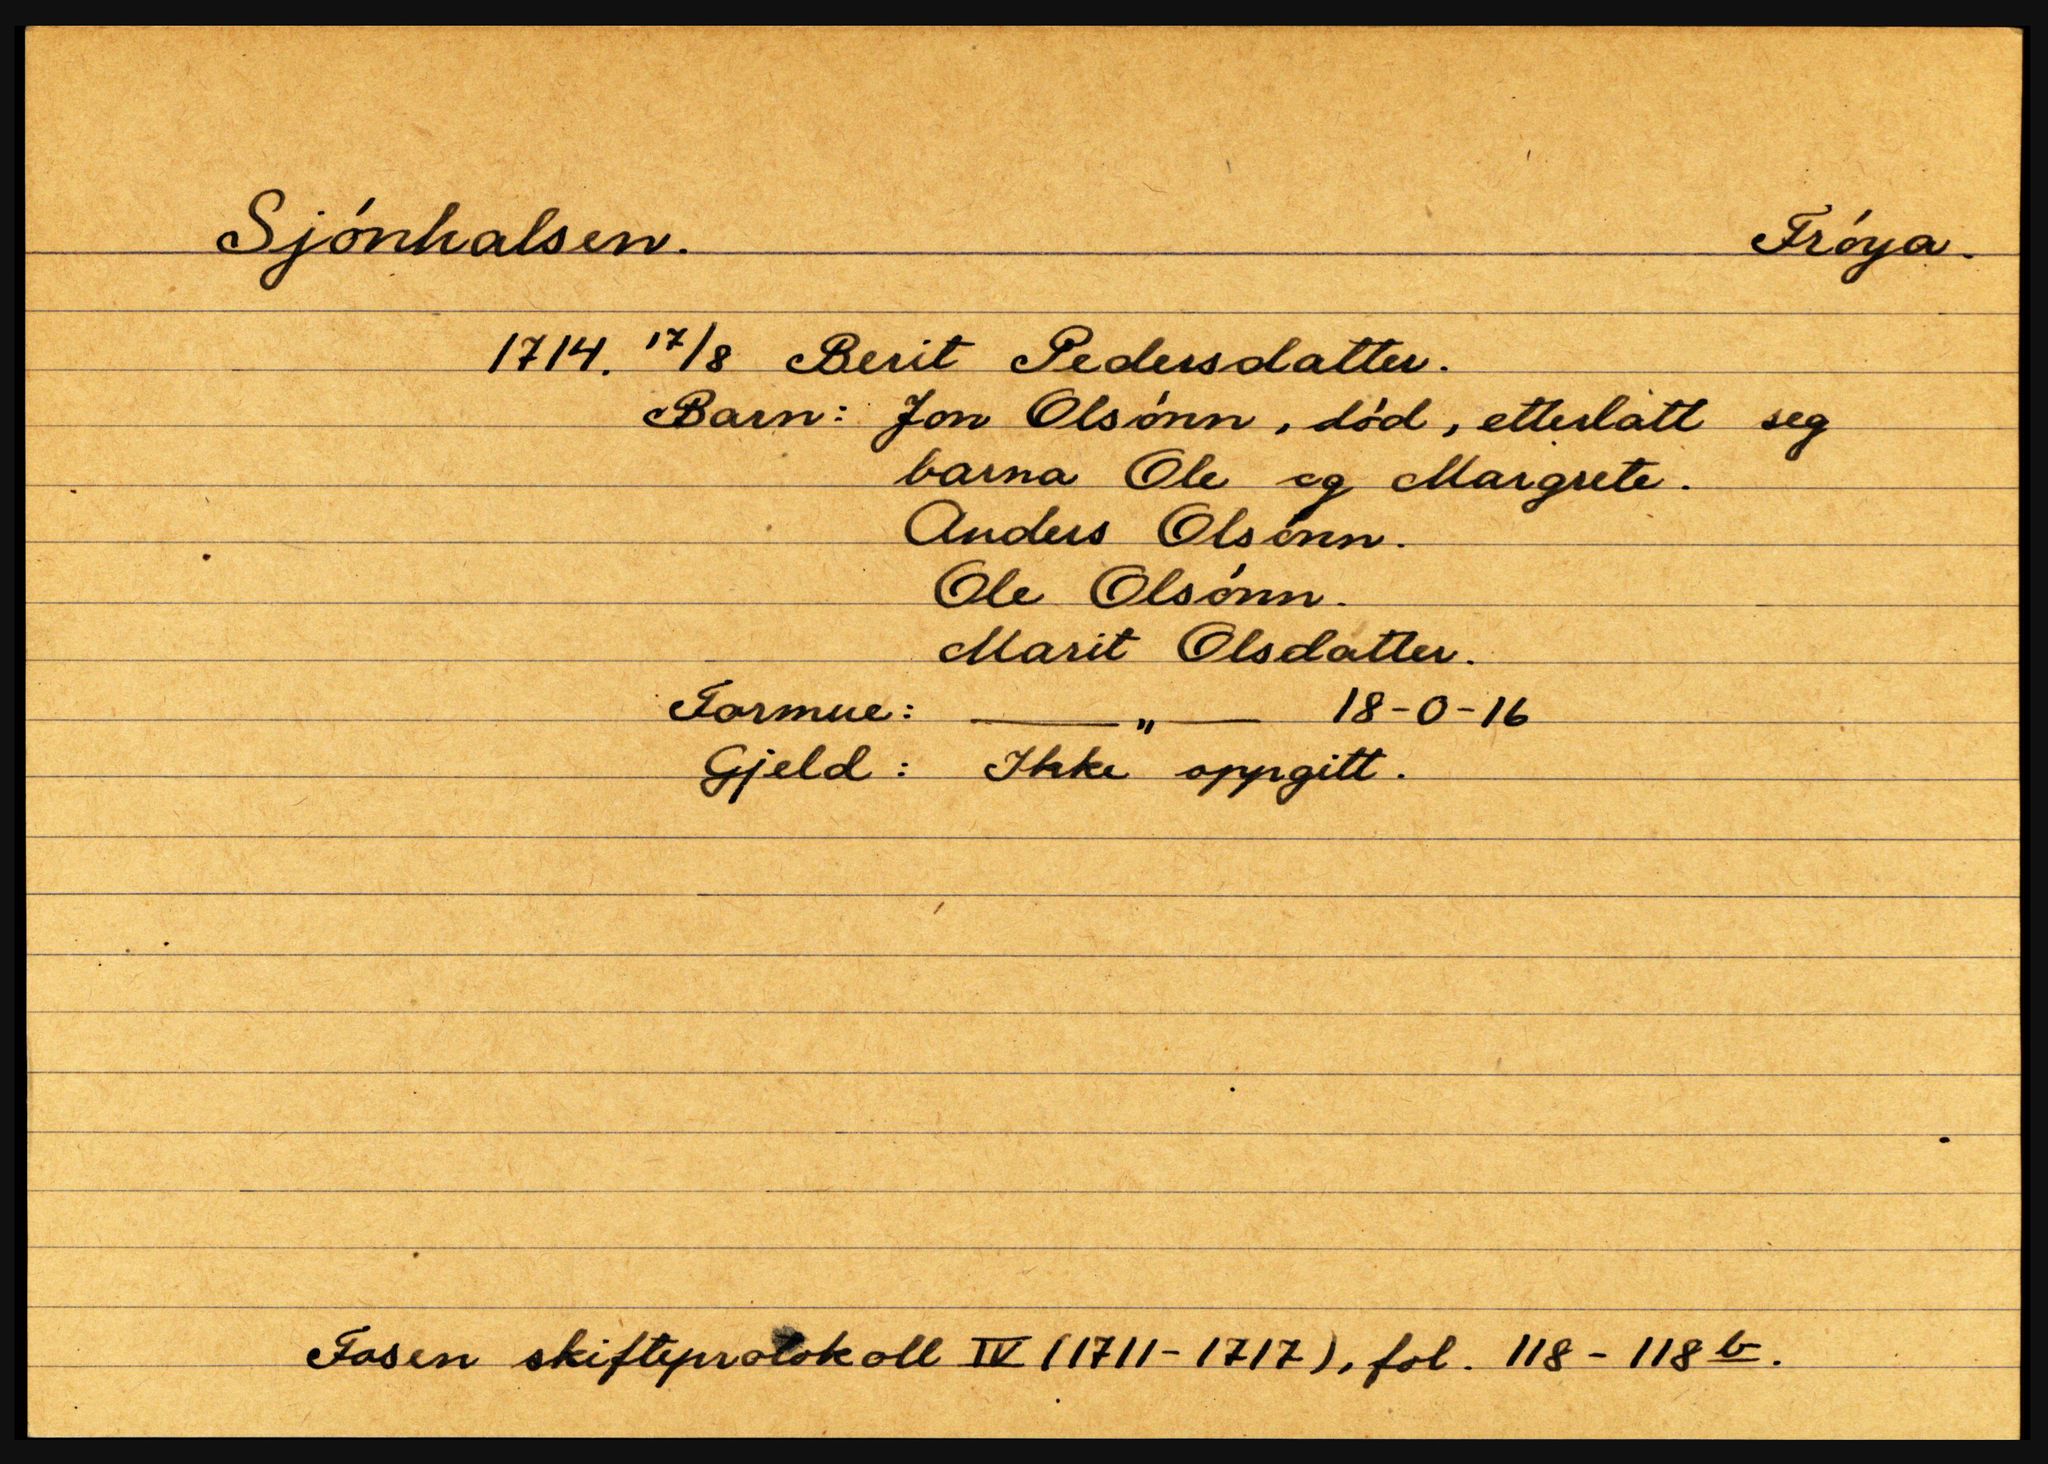 Sjónhalsen. Fróya.
1714. 17/8 Berit Pedersdatter.
Barn: Jon Olsónn, dód, etterlatt seg
barna Ole og Margrete.
Anders Olsónn.
Ole Olsónn.
Marit Olsdatter.
Formue: —— „ —— 18-0-16
Gjeld: Ikke oppgitt.
Fosen skifteprotokoll IV (1711-1717), fol. 118-118 b.